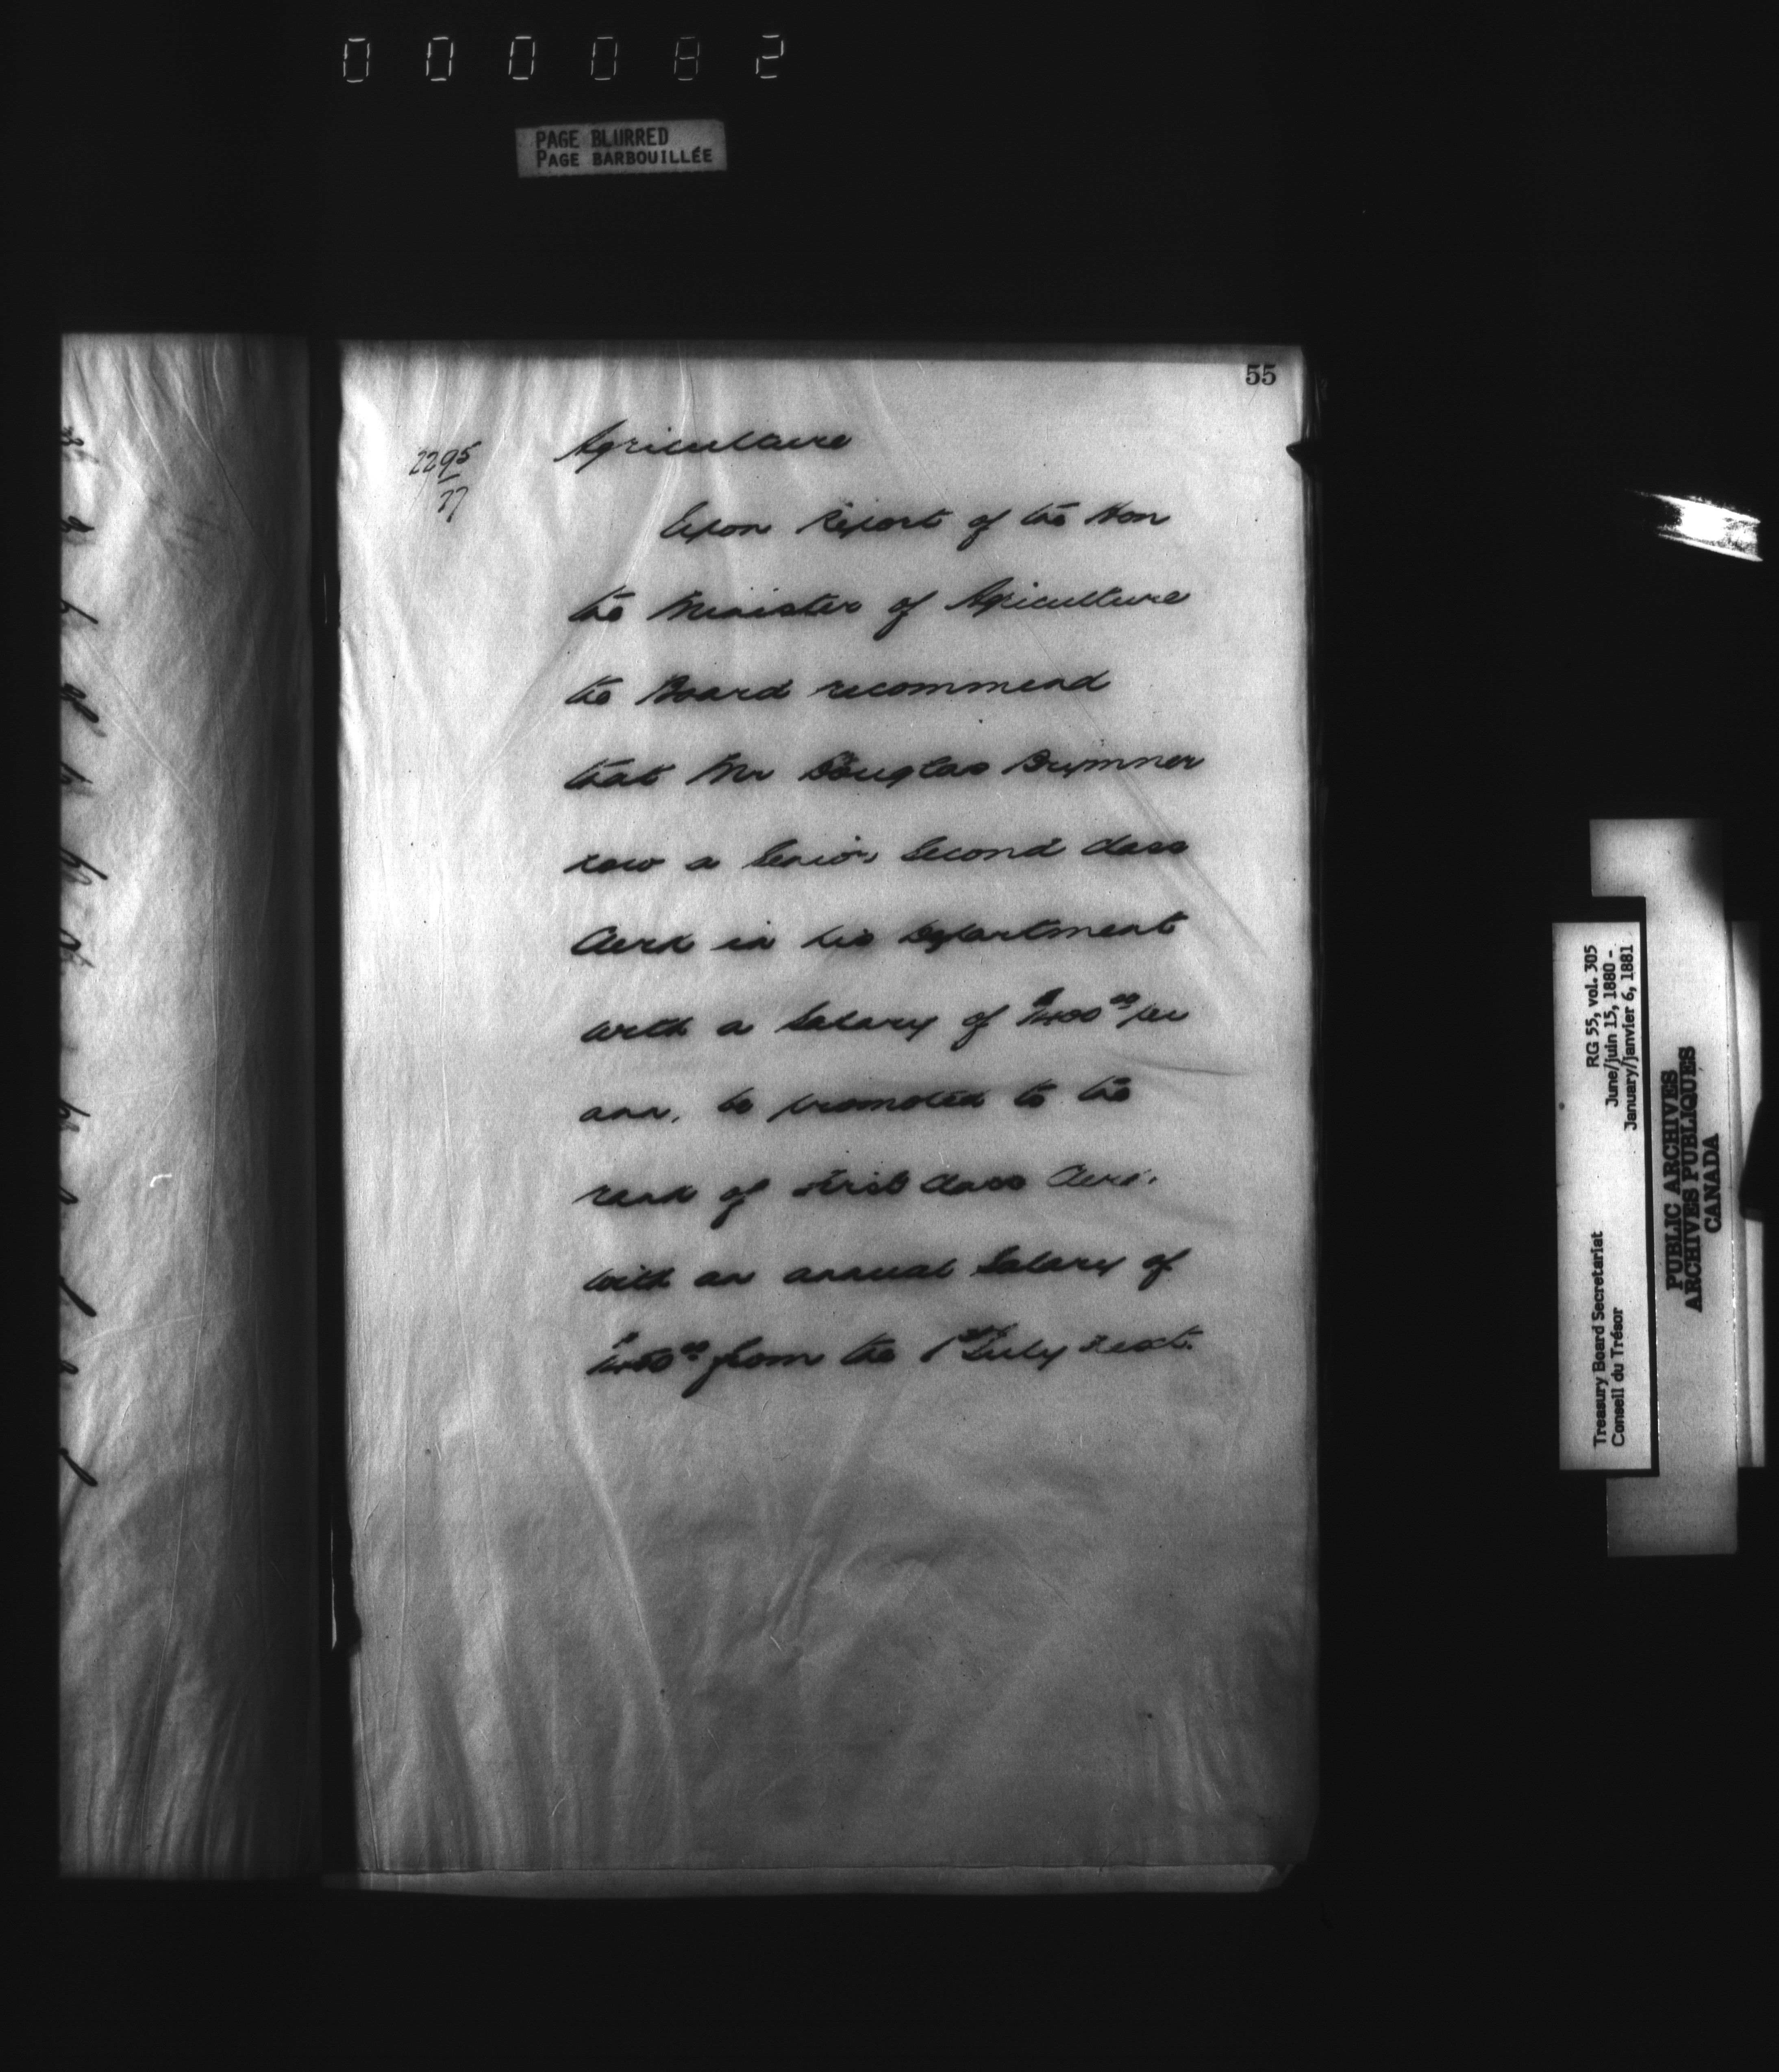 000082
PAGE BLURRED
PAGE BARBOUILLÉE
55
2295
77
Agriculture
Upon Report of the Hon
the Minister of Agriculture
the Board recommend
that Mr Douglas Brymner
now a Senior Second Class
Clerk in his Department
with a Salary of $1400 00 per
ann, be promoted to the
rank of First Class Clerk
with an annual Salary of
from the 1st July next.
Treasury Board Secretariat RG 55, vol. 305
Conseil du Trésor June/juin 15, 1880 -
January/janvier 6, 1881
PUBLIC ARCHIVES
ARCHIVES PUBLIQUES
CANADA